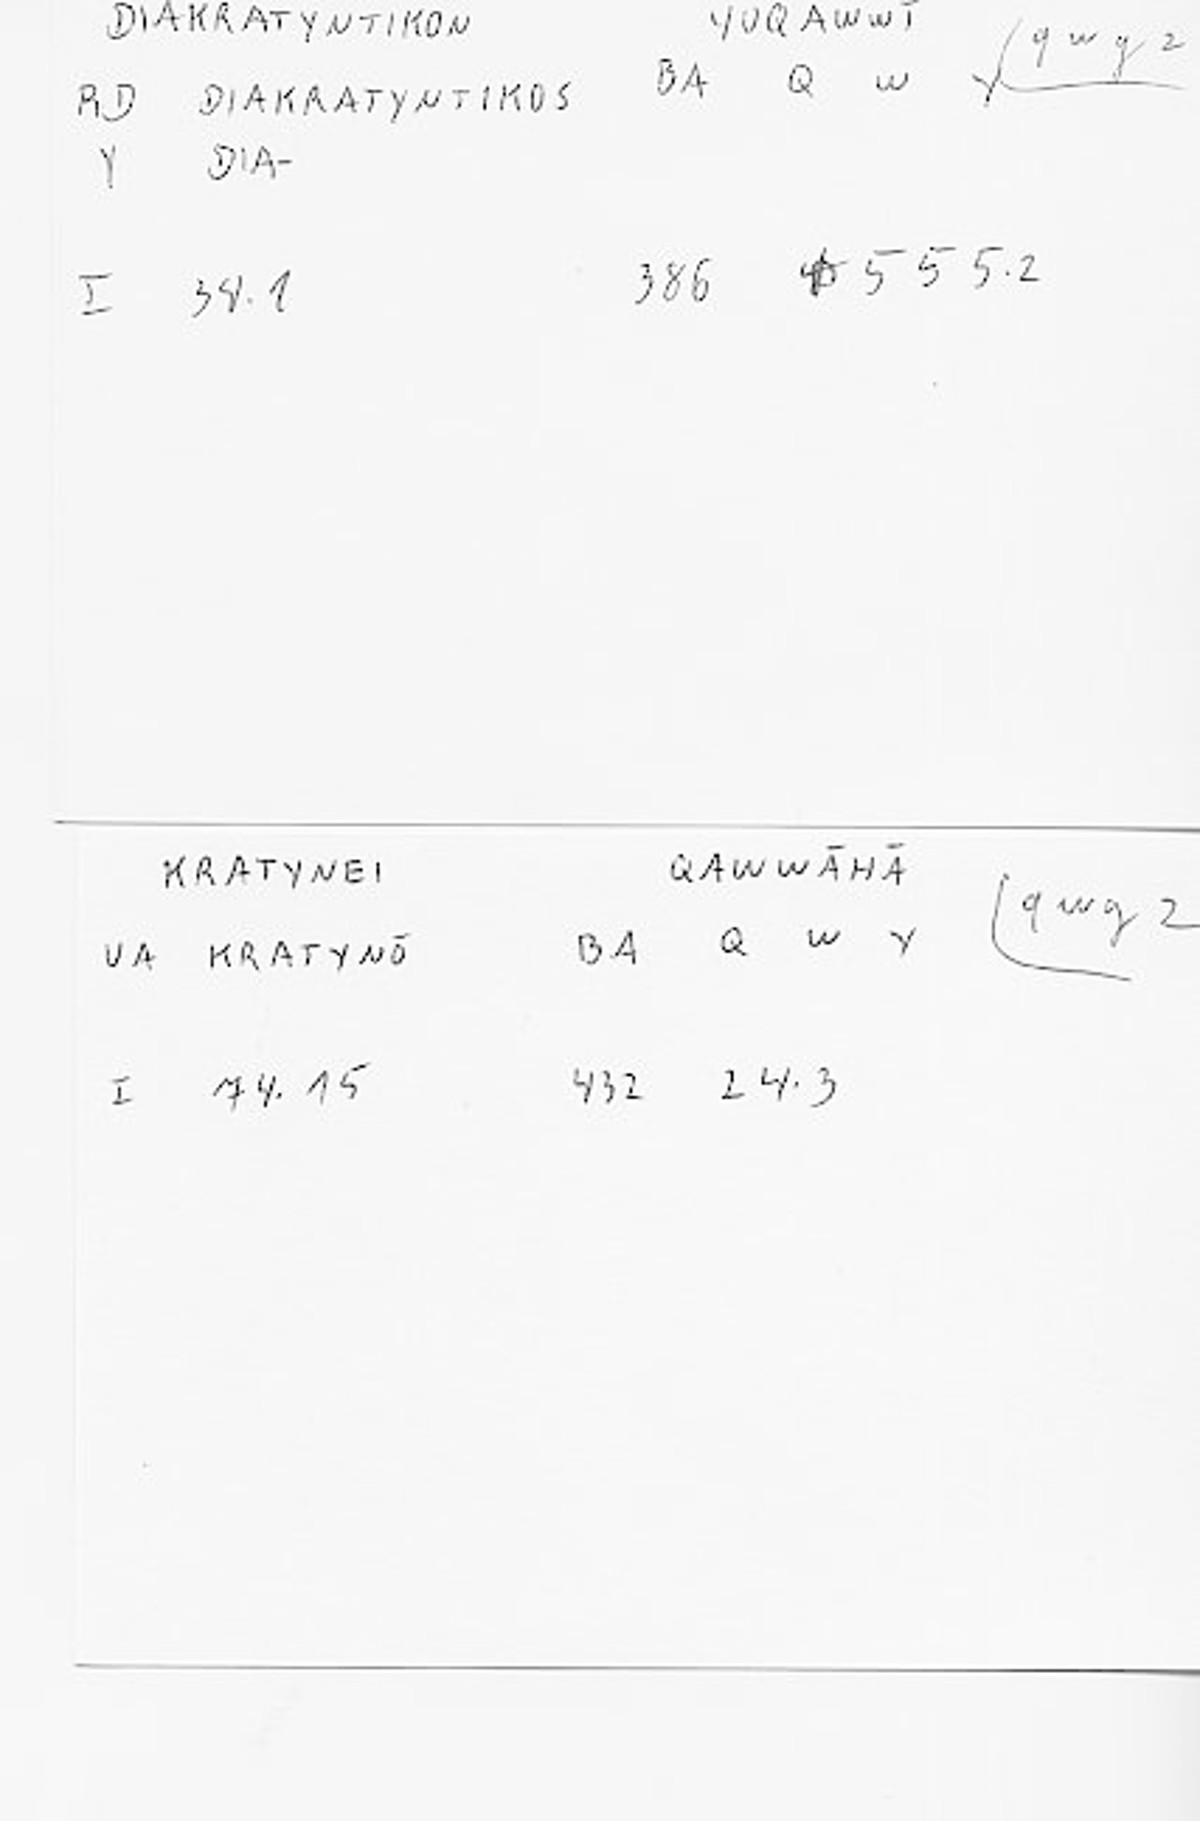 DIAKRATYNTIKON YUQAWWĪ
RD DIAKRATYNTIKOS BA Q W Y qwy 2
Y DIA-
I 34.1 386 5 5 5.2
KRATYNEI QAWWĀHĀ
UA KRATYNŌ BA Q W Y qwy 2
I 74.15 432 24.3